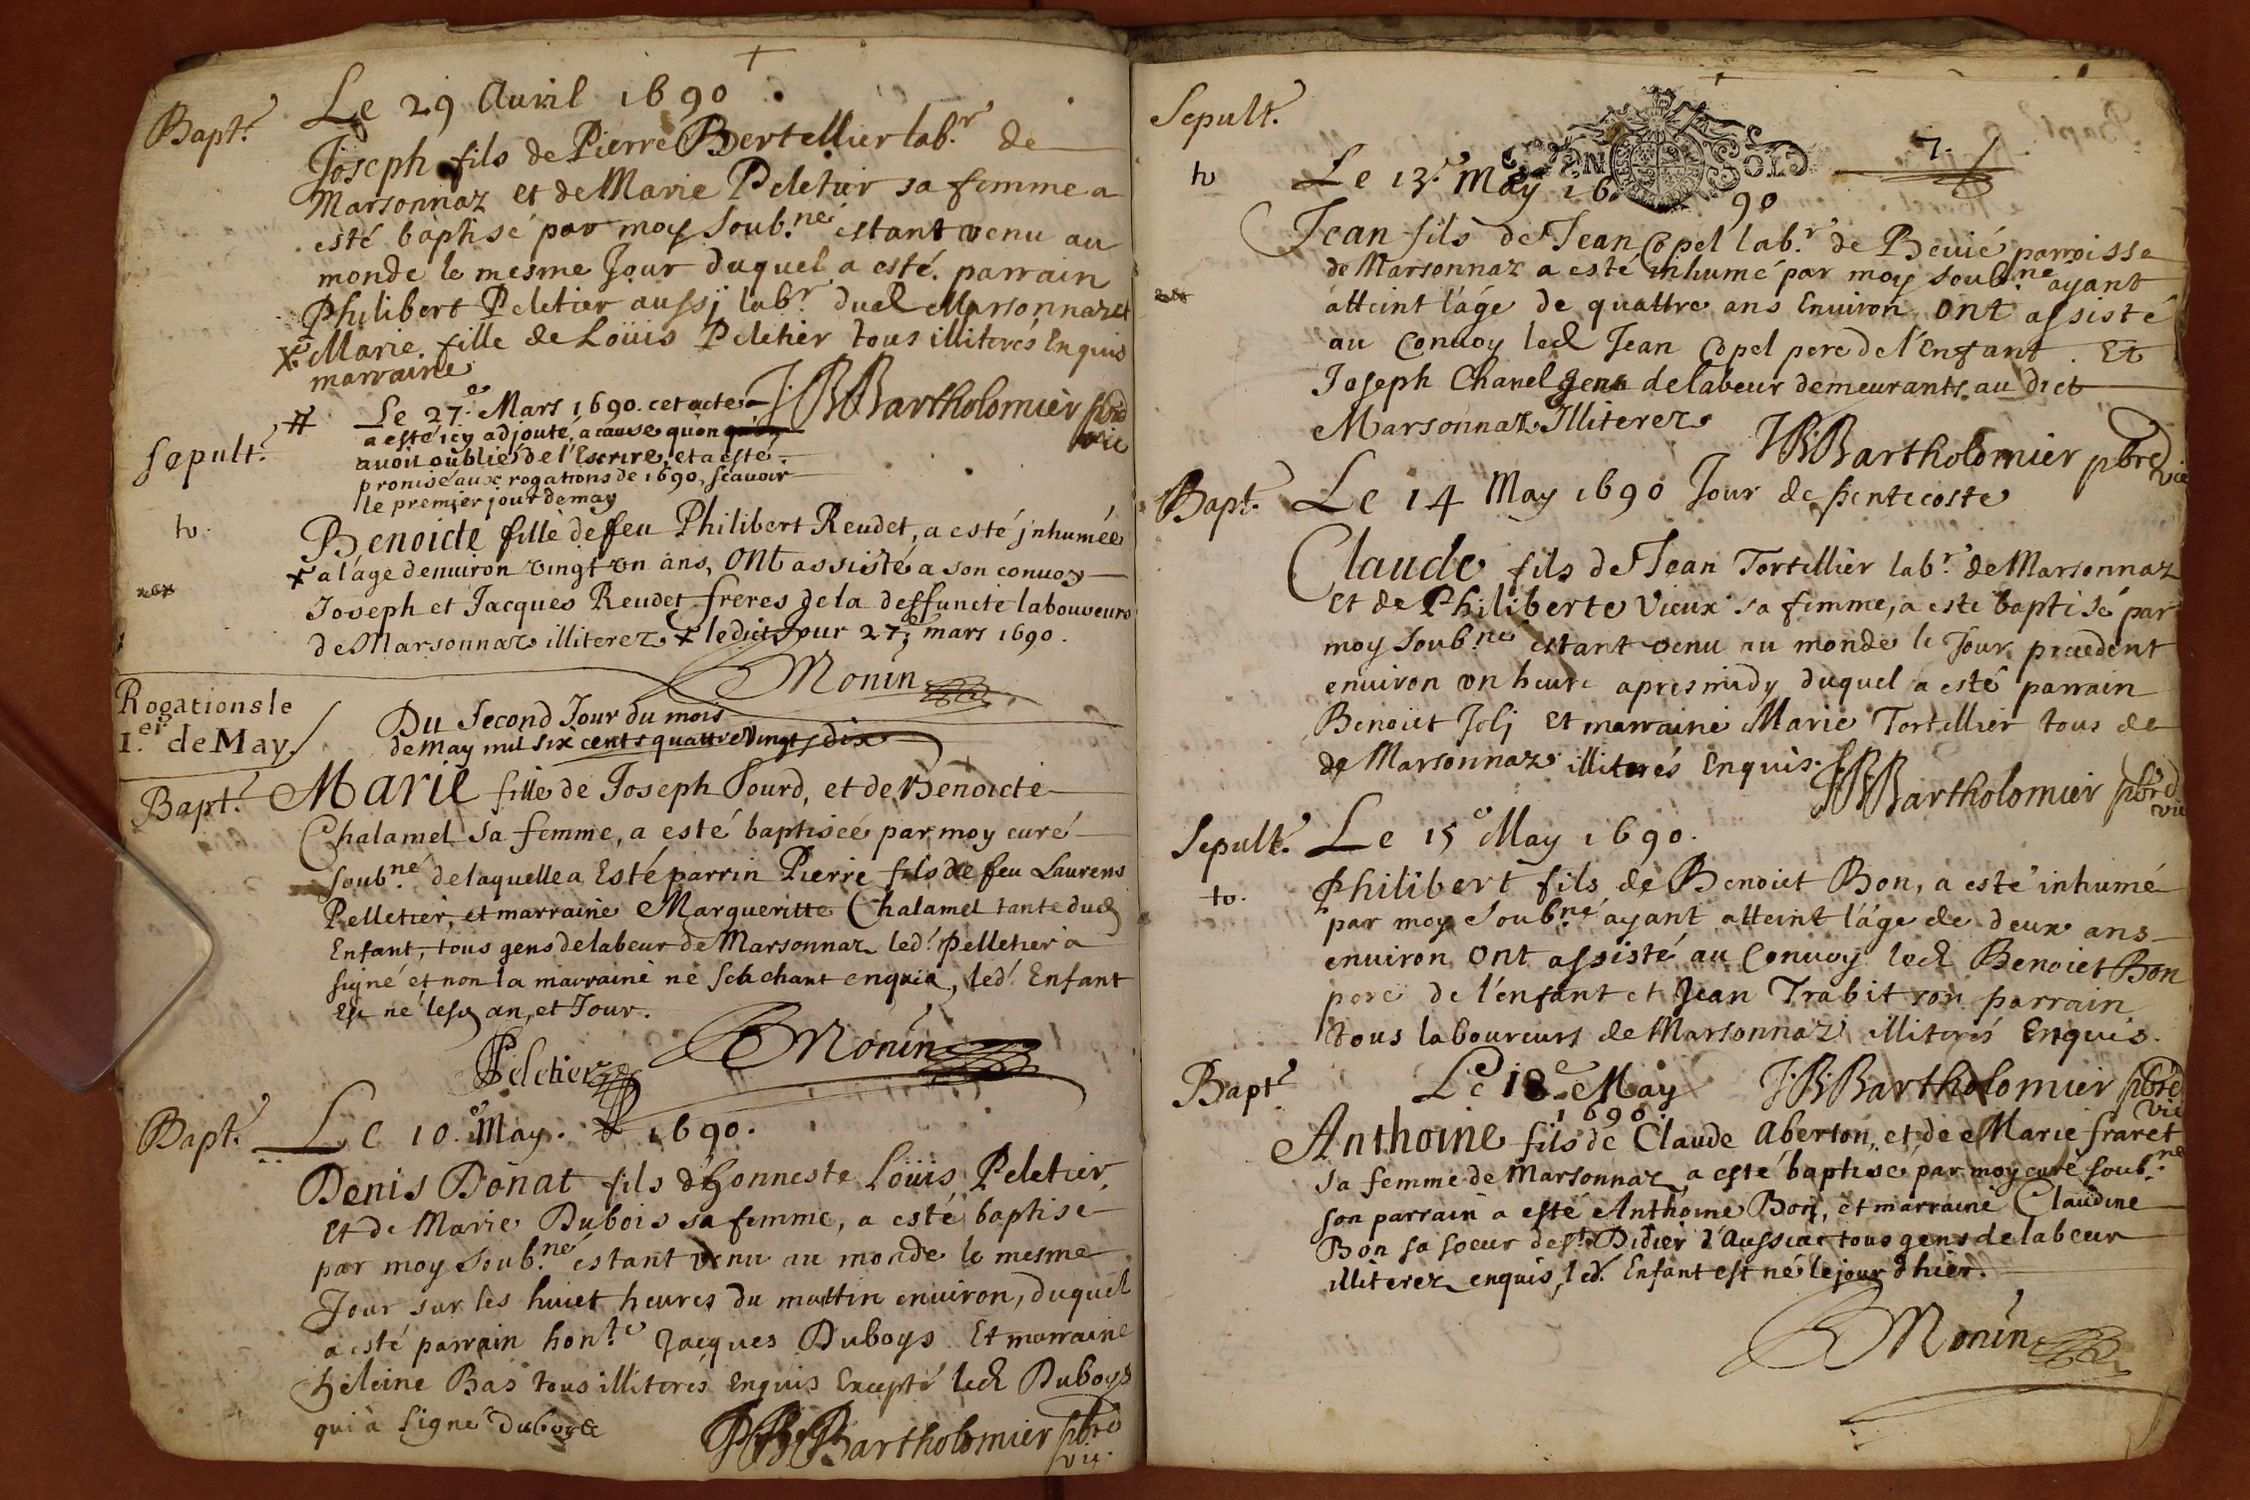 Bapt.e
Le 29 Auril 1690
Joseph fils de Pierre Bertellier lab.r de
Marsonnaz et de Marie Peletier sa femme a
esté baptisé par moy soub.né estant venu au
monde le mesme Jour duquel a esté parrain
Philibert Peletier aussj lab.r dud Marsonnaz et
X Marie fille de Loüis Peletier tous illiterés Enquis
marraine
J:B:Bartholomier pbre
vic
Sepult.e
# Le 27.e Mars 1690. cet acte
a esté icy adjouté, a cause quon
auoit oublié de l'Escrire, et a esté
promisé aux rogations de 1690, scauoir
le premier jour de may
to.
Benoicte fille de feu Philibert Reudet, a esté jnhumée
x a l'age denuiron vingt vn ans, Ont assisté a son conuoy
Joseph et Jacques Reudet freres de la deffuncte laboureurs
de Marsonnaz illiterez x ledict Jour 27.e mars 1690.
Monin
Rogations le
1.er de May.
Du Second Jour du mois
de May mil six cents quattre vingt dix
Bapt.e
Marie fille de Joseph Sourd, et de Benoicte
Chalamel sa femme, a esté baptiscé par moy curé
soub.né de laquelle a Esté parrin Pierre fils de feu Laurens
Pelletier, et marraine Margueritte Chalamel tante dud
Enfant, tous gens de labeur de Marsonnaz led.t Pelletier a
signé et non la marraine ne scachant enquise, led.t Enfant
Est né lesd an, et Jour.
PPeletier
Monin
Bapt.e
Le 10.e May. 1690.
Denis Donat fils d'honneste Loüis Peletier
Et de Marie Dubois sa femme, a esté baptisé
par moy soub.né éstant venu au monde le mesme
Jour sur les huict heures du mattin enuiron, duquel
a esté parrain hon.te Jacques Duboys Et marraine
heleine Bas tous illiterés Enquis Excepté led Duboys
qui a signé duboys
J:B:Bartholomier pbre
vic.
Sepult.e
7.
to
Le 13.e May 16 90
Jean fils de Jean Copel lab.r de Beuié parroisse
de Marsonnaz a esté inhumé par moy soub.né ayant
atteint l'áge de quattre ans Enuiron Ont assisté
au Conuoy led Jean Copel pere de l'Enfant . Et
Joseph Chanel gens de labeur demeurants au dict
Marsonnaz Illiterez
J:B:Bartholomier pbre
vic
Bapt.e
Le 14 May 1690 Jour de pentecoste
Claude fils de Jean Tortillier lab.r de Marsonnaz
Et de Philiberte Vieux sa femme, a esté baptisé par
moy soub.né estant venu au monde le Jour precedent
enuiron vn heure apres midy duquel a esté parrain
Benoict Jolj Et marraine Marie Tortillier tous de
de Marsonnaz illiterés Enquis.
J:B:Bartholomier pbre
vic
Sepult.e
Le 15.e May 1690.
to.
Philibert fils de Benoict Bon, a esté inhumé
par moy soub.né ayant atteint l'áge de deux ans
enuiron Ont assisté au Conuoy led Benoict Bon
pere de l'enfant et Jean Trabit son parrain
tous laboureurs de Marsonnaz illiterés Enquis.
J:B:Bartholomier pbre
vic
Bapt.e
Le 18.e May
1690.
Anthoine fils de Claude Aberton, et de Marie fraret
sa femme de Marsonnaz a esté baptisé par moy curé soub.né
son parrain a esté Anthoine Bon, et marraine Claudine
Bon sa soeur de s.t Didier d'Aussiac tous gens de labeur
illiterez enquis, led.t Enfant est né le jour d'hier.
Monin